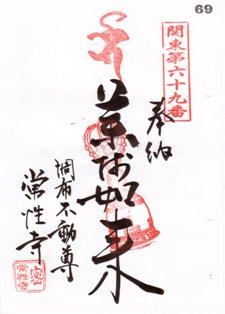 69
関東第六十九番
奉納
薬師如来
調布不動尊
常性寺